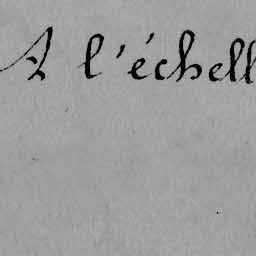 A l'échell